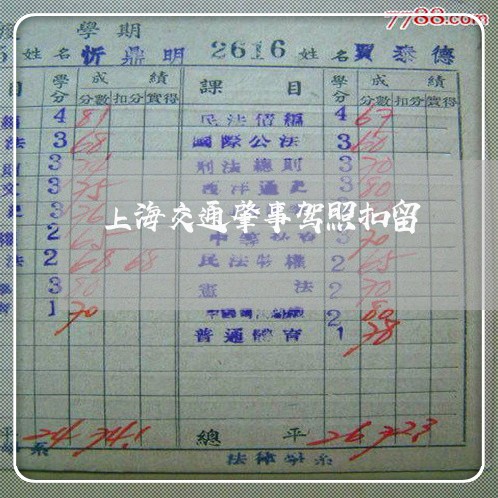 7788.com
學期
姓名 忻鼎明 2616 姓名 賈泰德
目 學分 成績 課目 學分 成績
分數 扣分 實得 分數 扣分 實得
4 81 民法債編 4 67
法 3 68 國際公法 3 60
3 刑法總則 3 70
3 75 西洋通史 3 80
3 76
上海交通肇事驾照扣留
2 65 3 70
法 2 68 68 民法物權 2 65
3 80 憲法 2 70
1 70 2 80
普通體育 1 78
平 24 74.1 總平 26 72.3
系 法律學系